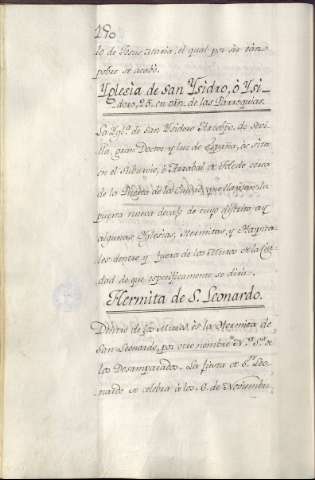 190
lo de Jesus, Maria, el qual por ser tan
pobre se acabò.
Yglesia de San Ysidro, ò Ysi-
doro, 25. en orn. de las Parroquias.
La Ygl.ª de San Ysidoro Arzobpo. de Sevi-
lla, gran Doctor y luz de España, es sita
en el Suburvio, ò Arrabal de Toledo cerca
de la Puerta de la Ciudad, que llaman la
puerta nueva de cuyo distrito ay
algunas Yglesias, Hermitas, y Hospita-
les dentro y fuera de los Muros de la Ciu-
dad de que especificamente se dirà.
Hermita de S. Leonardo.
Dentro de los Muros, es la Hermita de
San Leonardo, por otro nombre N.ª S.ª de
los Desamparados. La fiesta de S.ⁿ Leo-
nardo se celebra à los 6. de Noviembre